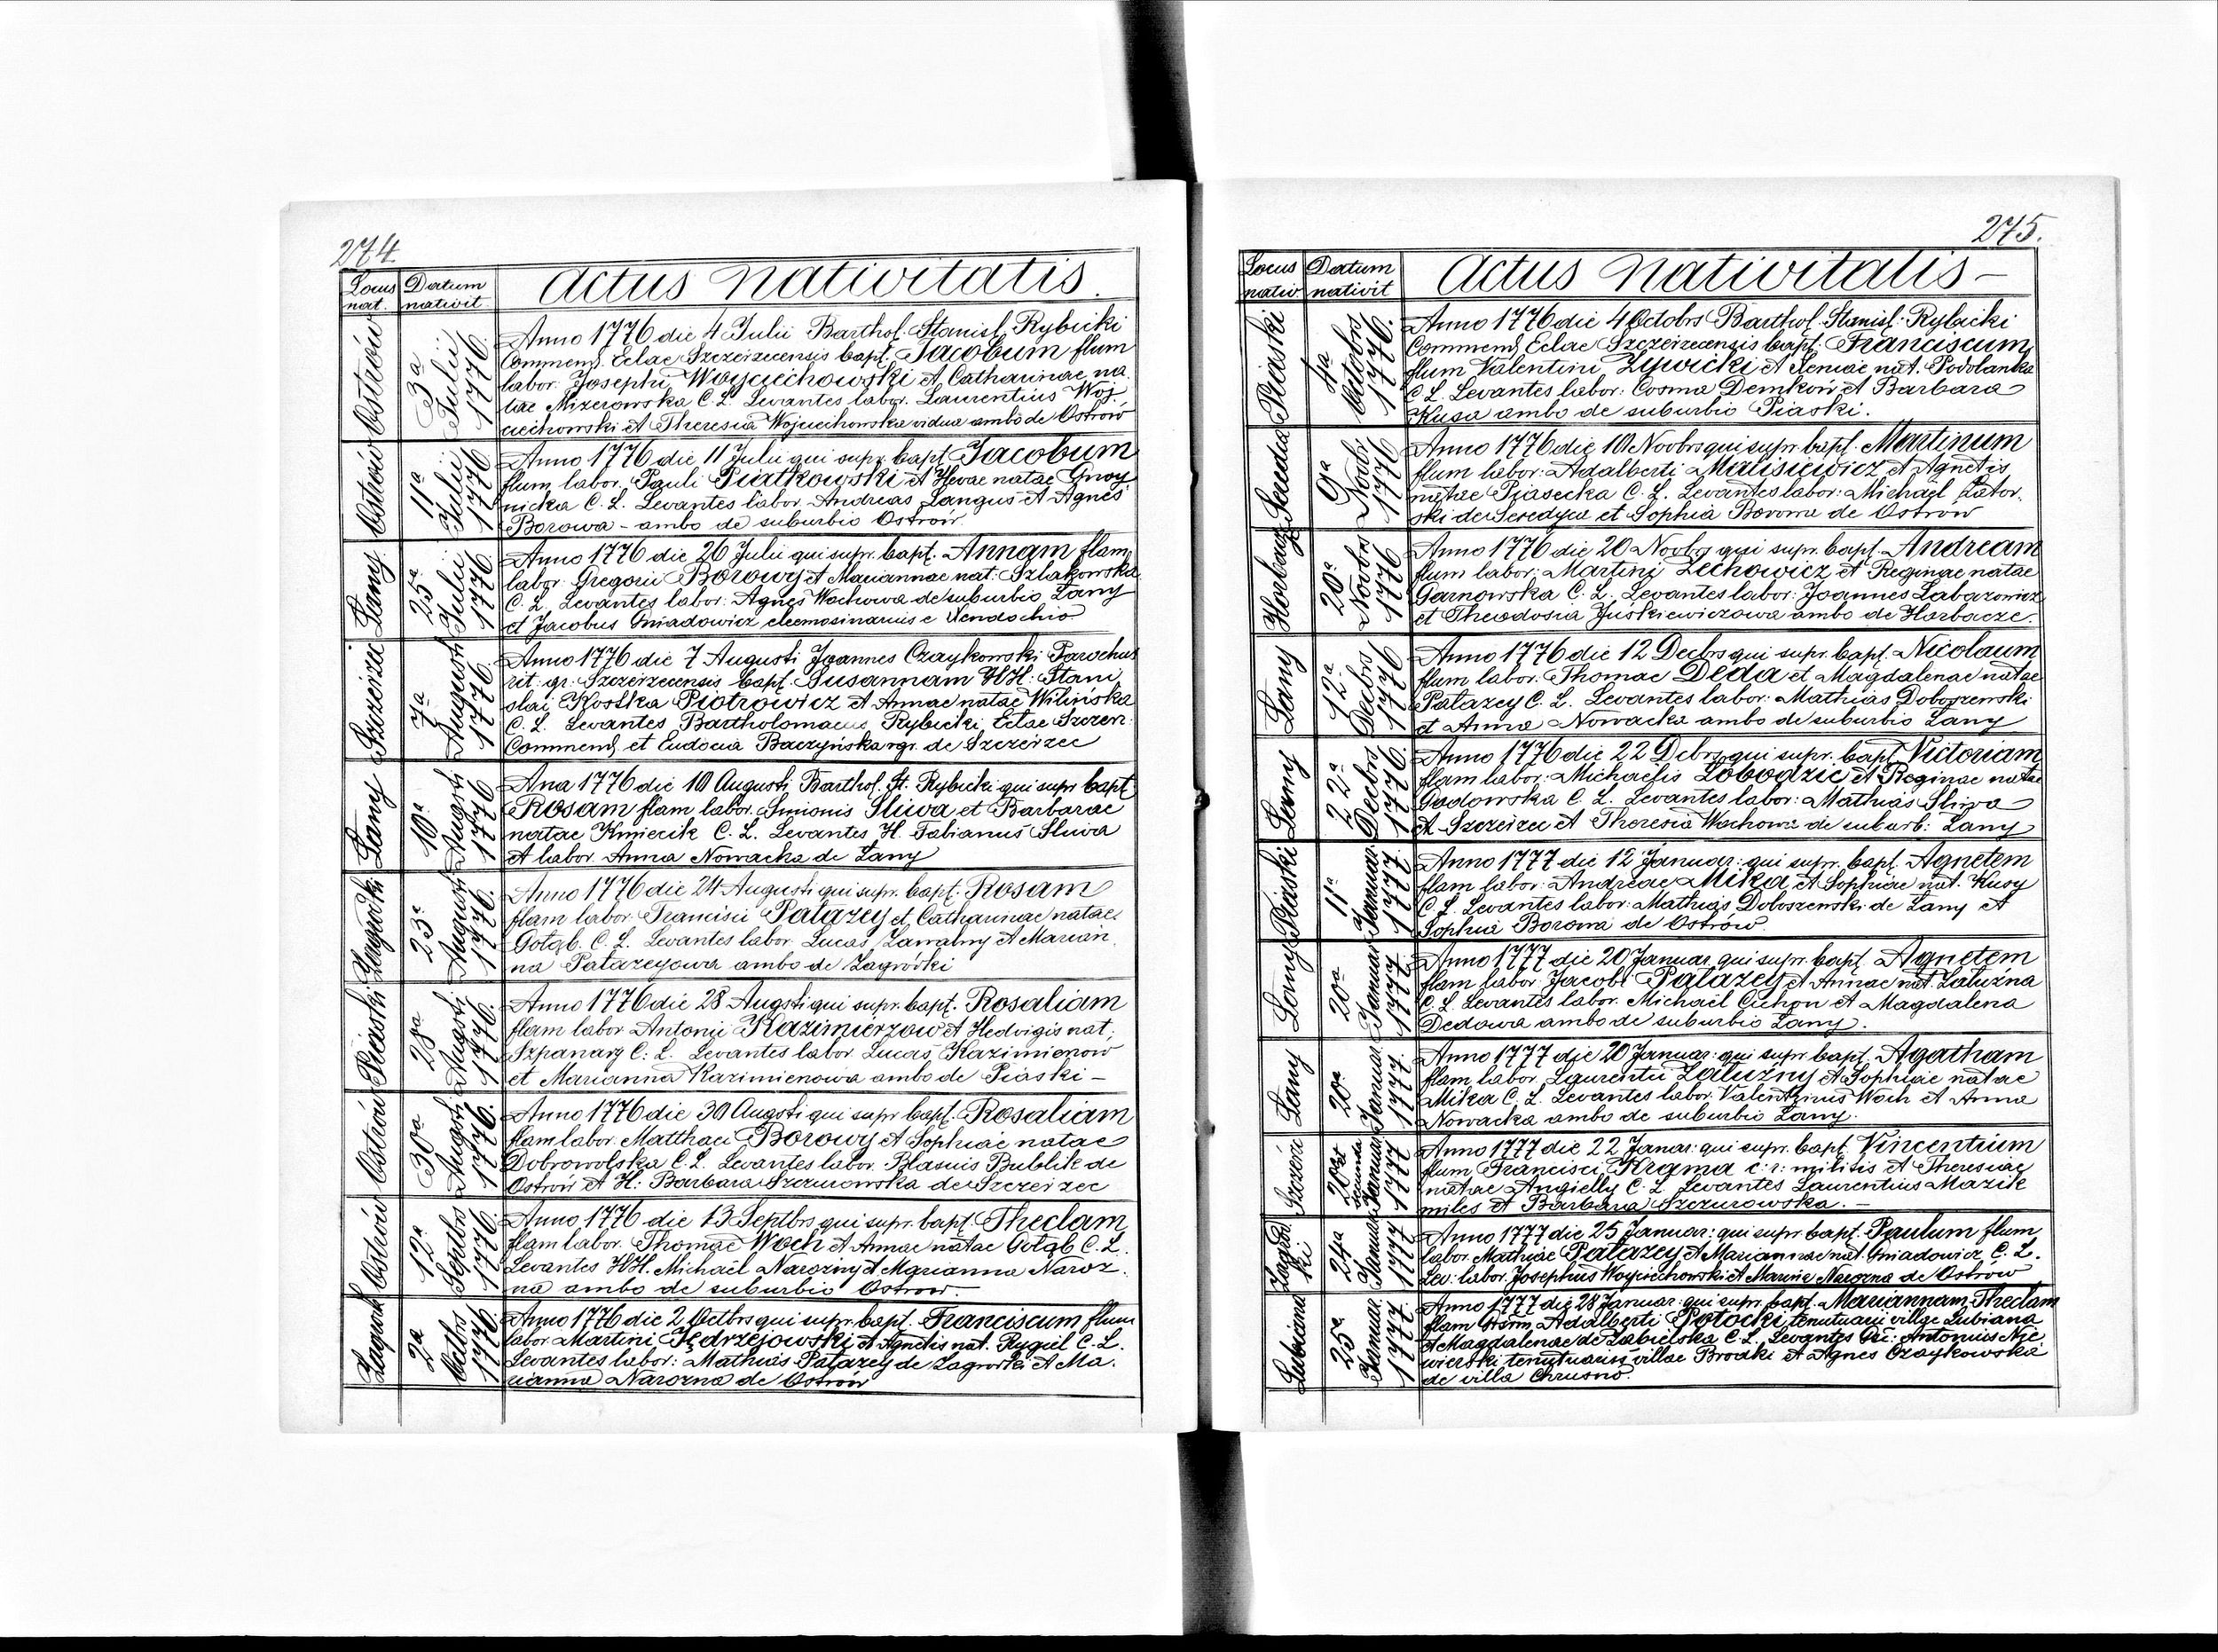 274.
Locus nat.
Datum nativit
Actus Nativitatis.
Ostrów
3a Julii 1776.
Anno 1776 die 4 Julii Barthol. Stanisl. Rybicki
Commend. Eclae Szczeirzecensis bapt. Jacobum flum
labor. Josephi Woyciechowski et Catharinae na
tae Mizerowska C. L. Levantes labor. Laurentius Woj
ciechowski et Theresia Wojciechowska vidua ambo de Ostrów
Ostrów
11a Julii 1776
Anno 1776 die 11 Julii qui supr. bapt. Jacobum
flum labor. Pauli Piatkowski et Hevae natae Gnoy
nicka C. L. Levantes labor. Andreas Langus et Agnes
Borowa - ambo de suburbio Ostrów
Łany
25a Julii 1776.
Anno 1776 die 26 Julii qui supr. bapt. Annam flam
labor. Gregorii Borowy et Mariannae nat. Szlakowska
C. L. Levantes labor: Agnes Wochowa de suburbio Łany
et Jacobus Gniadowicz eleemosinarius e Xendochio
Szczeirzec
7a Augusti 1776.
Anno 1776 die 7 Augusti Joannes Czaykowski Parochus
rit. gr. Szczeirzecensis bapt. Susannam HH. Stani
slai Kostka Piotrowicz et Annae natae Wilińska
C. L. Levantes Bartholomaeus Rybicki Eclae Szczeir:
Commend. et Eudocia Baczyńska rgr. de Szczeirzec
Łany
10a Augusti 1776
Ana 1776 die 10 Augusti Barthol. St. Rybicki qui supr bapt
Rosam flam labor. Simionis Sliwa et Barbarae
natae Kmiecik C. L. Levantes H. Fabianus Sliwa
et labor. Anna Nowacka de Łany
Zagródki
23a Augusti 1776.
Anno 1776 die 24 Augusti qui supr. bapt. Rosam
flam labor. Francisci Patazey et Catharinae natae
Gołąb. C. L. Levantes labor. Lucas Zawalny et Marian.
na Patazeyowa ambo de Zagródki
Piaski
28a Augusti 1776.
Anno 1776 die 28 Augsti qui supr. bapt. Rosaliam
flam labor Antonii Kazimierzow et Hedvigis nat.
Szpanarz C: L. Levantes labor. Lucas Kazimierow
et Marianna Kazimierowa ambo de Piaski -
Ostrów
30a Augusti 1776.
Anno 1776 die 30 Augsti qui supr bapt. Rosaliam
flam labor. Matthaei Borowy et Sophiae natae
Dobrowolska C. L. Levantes labor. Blasius Bublik de
Ostrów et H: Barbara Szczurowska de Szczeirzec
Ostrów
12a Septbrs 1776.
Anno 1776 die 13 Septbrs qui supr. bapt. Theclam
flam labor. Thomae Woch et Annae natae Gołąb C. L.
Levantes HH. Michaël Narozny et Marianna Naroz.
na ambo de suburbio Ostrow.
Zagrod.
2a Octbrs 1776.
Anno 1776 die 2 Octbrs qui supr. bapt. Franciscum flum
labor. Martini Jędrzejowski et Agnetis nat. Rygiel C. L.
Levantes labor: Mathias Patazey de Zagrodki et Ma.
rianna Narozna de Ostrów
275.
Locus nativ
Datum nativit
Actus Nativitatis -
Piaski
4a Octobrs 1776.
Anno 1776 die 4 Octobrs Barthol. Stanisl. Rybicki
Commend. Eclae Szczeirzecensis bapt. Franciscum
flum Valentini Zywicki et Xeniae nat. Podolanka
C L. Levantes labor: Cosma Demków et Barbara
Kusa ambo de suburbio Piaski.
9a Novbr. 1776
Anno 1776 die 10 Novbrs qui supr. bapt. Martinum
flum labor: Adalberti Malisiewicz et Agnetis
natae Piasecka C. L. Levantes labor: Michaël Zator.
ski de Seredyca et Sophia Borowa de Ostrow
Horbacze
20a Novbrs 1776
Anno 1776 die 20 Novbrs qui supr. bapt. Andream
flum labor: Martini Lechowicz et Reginae natae
Garnowska C. L. Levantes labor: Joannes Labazowicz
et Theodosia Juśkiewiczowa ambo de Horbacze.
Łany
12a Decbrs 1776
Anno 1776 die 12 Decbrs qui supr. bapt. Nicolaum
flum labor. Thomae Deda et Magdalenae natae
Patazey C. L. Levantes labor: Mathias Doboszewski
et Anna Nowacka ambo de suburbio Łany
Łany
22a Decbrs 1776.
Anno 1776 die 22 Dcbrs qui supr. bapt. Victoriam
flam labor: Michaelis Łobodzic et Reginae natae
Gadowska C. L. Levantes labor: Mathias Sliwa
et Szczeirzec et Theresia Wochowa de suburb: Łany
Piaski
11a Januar. 1777.
Anno 1777 die 12 Januar: qui supr. bapt. Agnetem
flam labor: Andreae Mika et Sophiae nat. Kusy
C L. Levantes labor: Mathias Doboszewski de Łany et
Sophia Borowa de Ostrów.
Łany
20a Januar 1777.
Anno 1777 die 20 Januar. qui supr. bapt. Agnetem
flam labor. Jacobi Patazey et Annae nat. Załużna
C. L. Levantes labor. Michaël Cichon et Magdalena
Dedowa ambo de suburbio Łany.
Łany
20a Januar 1777.
Anno 1777 die 20 Januar: qui supr. bapt. Agatham
flam labor. Laurentii Załużny et Sophiae natae
Mika C. L. Levantes labor. Valentinus Woch et Anna
Nowacka ambo de suburbio Łany.
Szczeirz
secunda Januar 1777
Anno 1777 die 22 Januar: qui supr. bapt. Vincentium
flum Francisci Krama c: r: militis et Theresiae
natae Angielly C. L. Levantes Laurentius Mazik
miles et Barbara Szczurowska. -
Zagrod ki
24a Januar 1777
Anno 1777 die 25 Januar: qui supr. bapt. Paulum flum
labor. Mathiae Patazey et Mariannae nat. Gniadowicz C. L.
Lev: labor. Josephus Woyciechowski et Marina Narozna de Ostrów
Lubiana
25a Januar. 1777.
Anno 1777 die 28 Januar: qui supr. bapt. Mariannam Theclam
flam Adalberti Potocki tenutuarii villae Lubiana
et Magdalenae de Zabielska C. L. Levantes Antonius Nie
wierski tenutuarius villae Brodki et Agnes Czaykowska
de villa Chrusno.